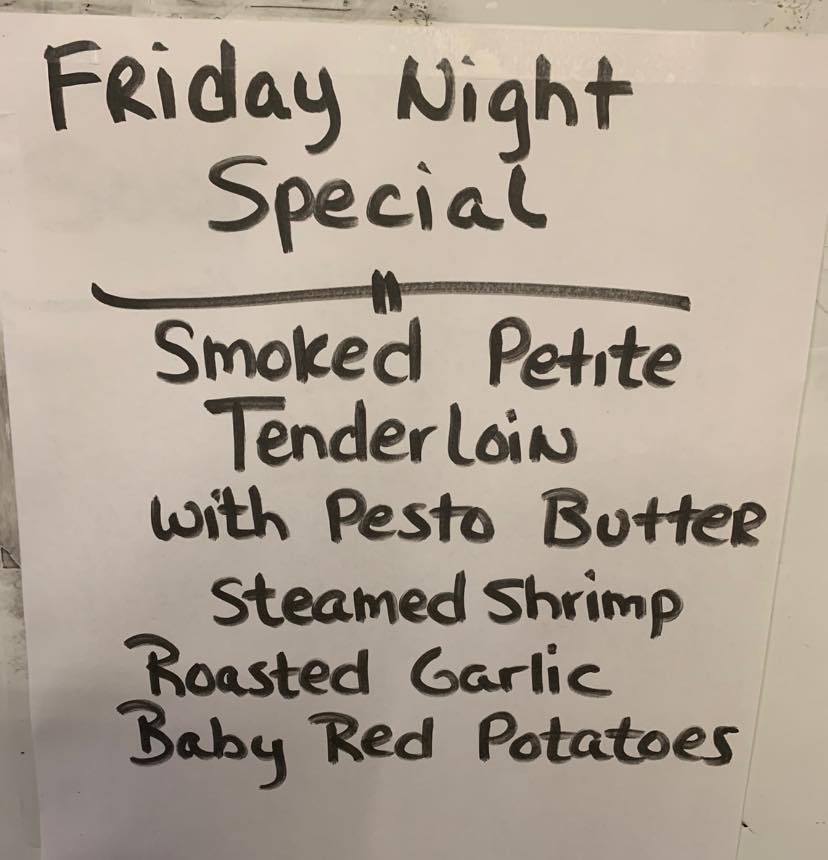 Friday Night
Special
Smoked Petite
Tenderloin
with Pesto Butter
Steamed Shrimp
Roasted Garlic
Baby Red Potatoes